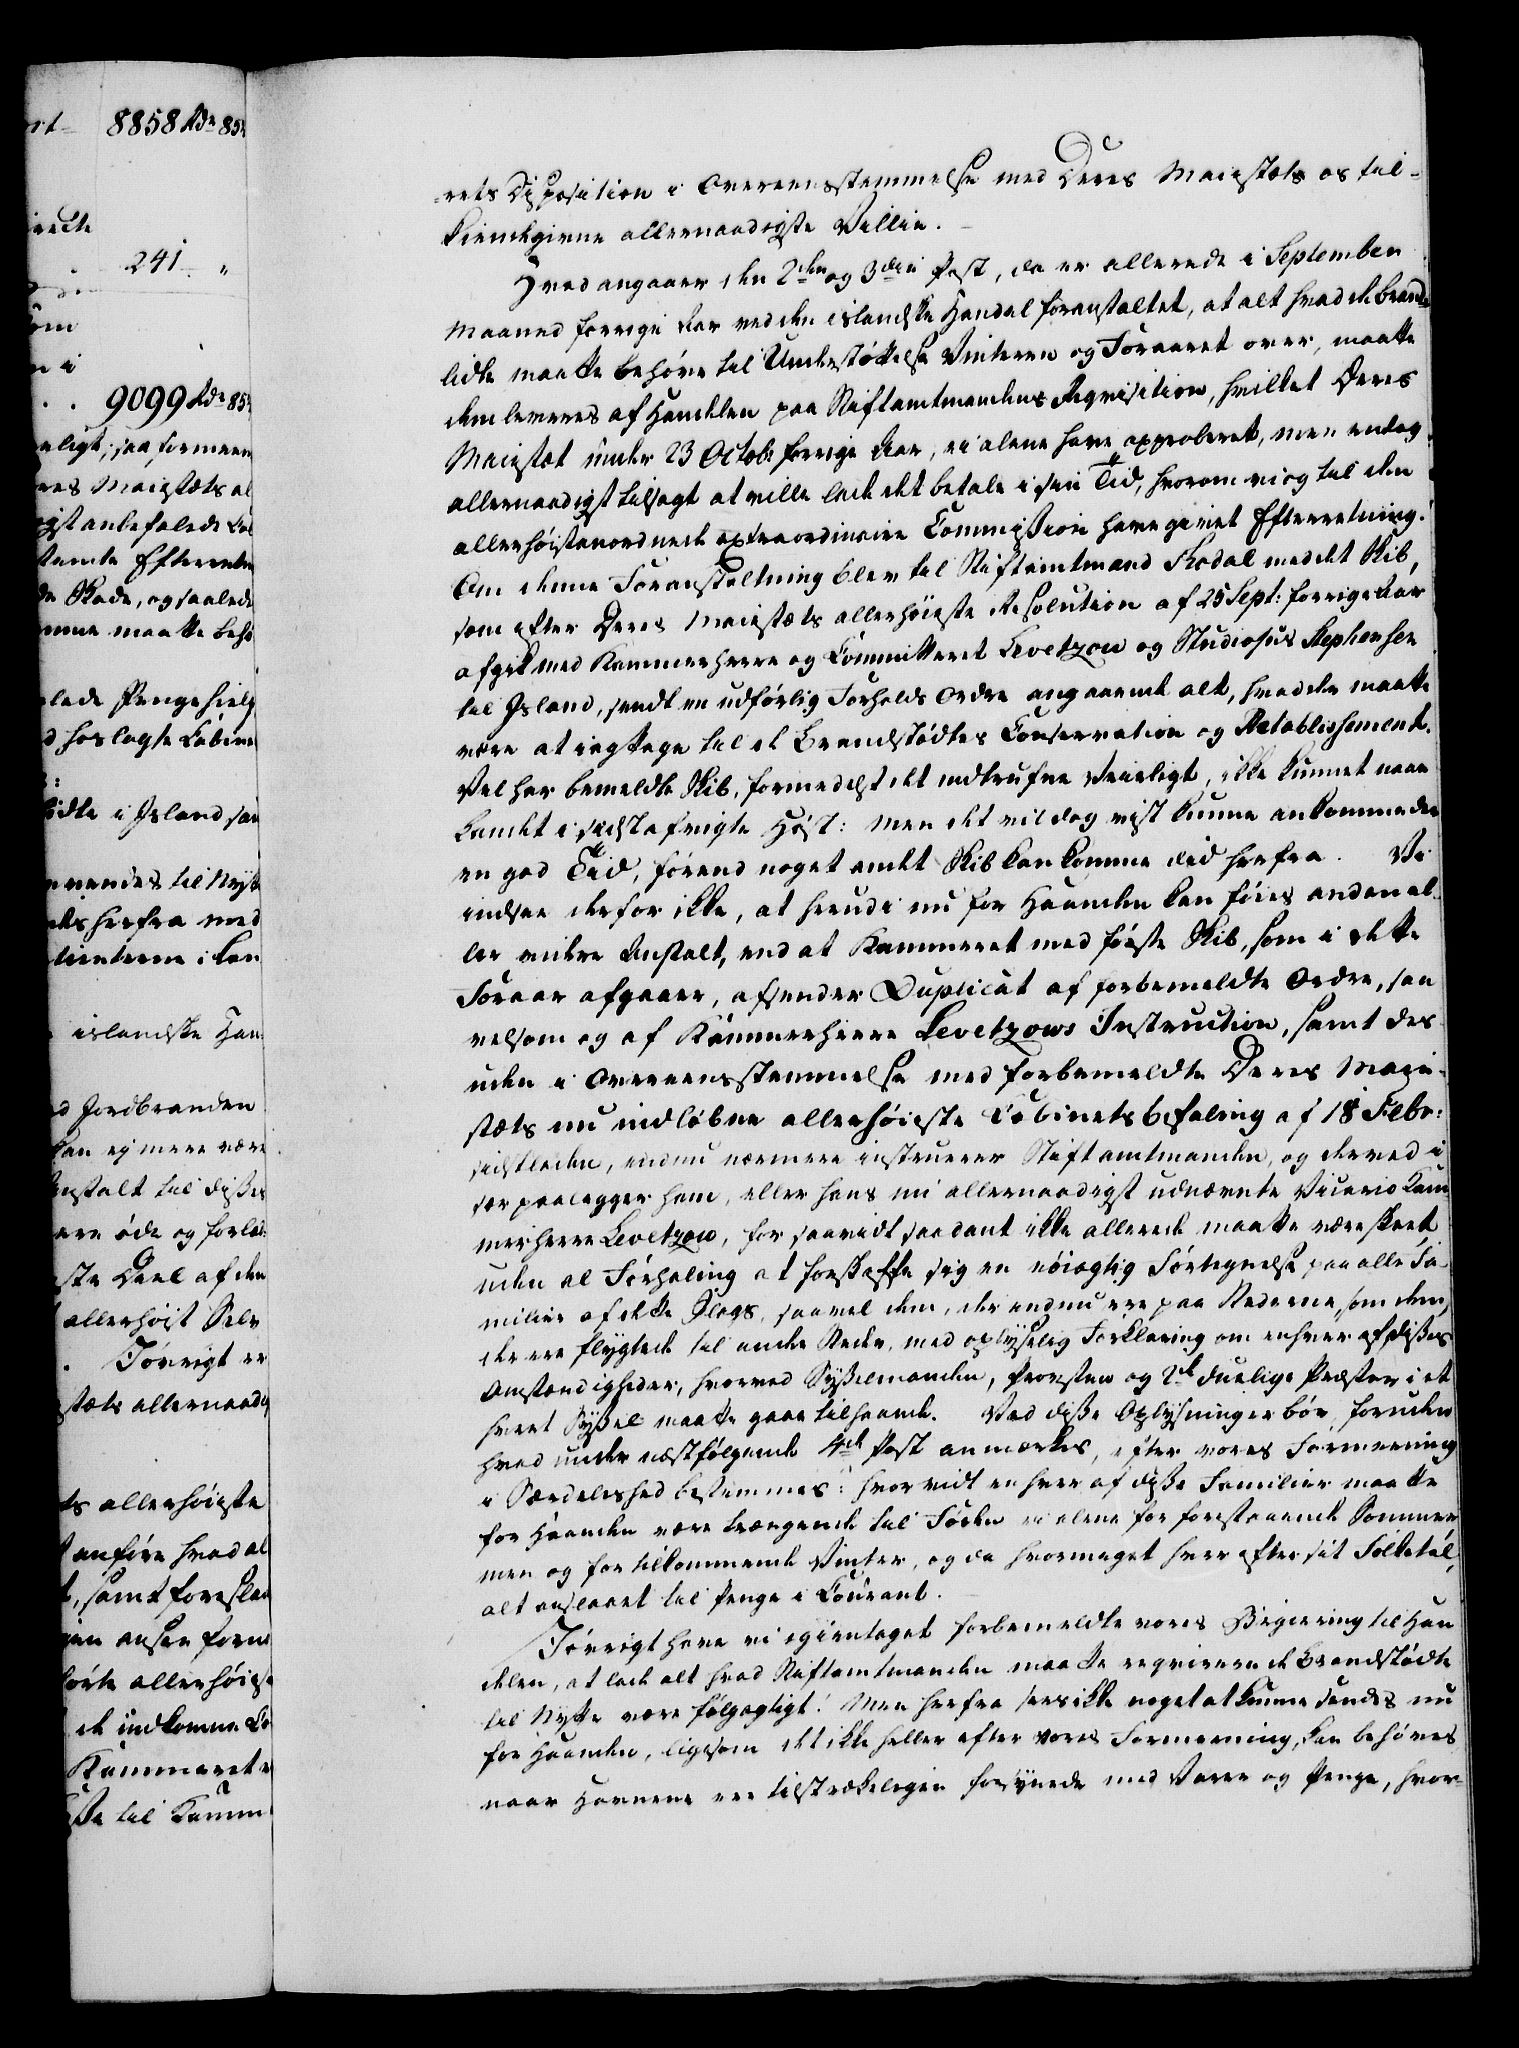 rt 8858 Rdr 85
irede
241 „
om
n i
9099 Rdr 85
eligt, saa formeen
res Maiestæts al
igst anbefalede Ca
stemte Efterretn
de Skade, og saalede
mme maatte behø
lede Pengehielp
d hoslagte Cabine
idte i Island saa
nvendes til Nytt
des herfra med
lienterne i Lan
islandske Han
d Jordbranden
kan ej mere være
nstalt til disses
ere øde og forlad
ste Deel af den
allerhøist Selv
Iøvrigt er
stæts allernaadig
ts allerhøieste
anføre hvad al
, samt foreslaa
gen ansee forn
hørte allerhøiest
de indkomne Co
Kammeret e
sse til Kamm
-rets Disposition i Overeensstemmelse med Deres Maiestæts os til-
kiendegivne allernaadigste Villie.
Hvad angaaer den 2den og 3die Post, da er allerede i September
Maaned forrige Aar ved den islandske Handel foranstaltet, at alt hvad de brand-
lidte maatte behøve til Understøttelse Vinteren og Foraaret over, maatte
dem leveres af Handelen paa Stiftamtmandens Reqvisition, hvilket Deres
Maiestæt under 23 Octobr forrige Aar, ei alene have approberet, men endog
allernaadigst tilsagt at ville lade det betale i sin Tid, hvorom vi og til den
allerhøistanordnede extraordinaire Commission have givet Efterretning.
Om denne Foranstaltning blev til Stiftamtmand Thodal med det Skib,
som efter Deres Maiestæts allerhøieste Resolution af 25 Sept: forrige Aar
afgik med Kammerherre og Committeret Levetzow og Studiosus Stephensen
til Island, sendt en udførlig Forholds Ordre angaaende alt, hvad der maatte
være at iagttage til de Brandstødtes Conservation og Retablissement.
Vel har bemeldte Skib, formedelst det indtrufne Veirligt, ikke kunnet naae
Landet i sidstafvigte Høst: men det vil dog vist kunne ankomme der
en god Tid, førend noget andet Skib kan komme did herfra. Vi
indsee derfor ikke, at herudi nu for Haanden kan føies anden el-
ler videre Anstalt, end at Kammeret med første Skib, som i dette
Foraar afgaaer, afsender Duplicat af forbemeldte Ordre, saa
velsom og af Kammerherre Levetzows Instruction, samt des-
uden i Overeensstemmelse med forbemeldte Deres Maje-
stæts nu indløbne allerhøieste Cabinetsbefaling af 18 Febr:
sidstleden, endnu nærmere instruerer Stiftamtmanden, og derved i
sær paalægger ham, eller hans nu allernaadigst udnævnte Vicario Kam-
merherre Levetzow, for saavidt saadant ikke allerede maatte være skeet
uden al Forhaling at forskaffe sig en nøiagtig Fortegnelse paa alle Fa-
milier af dette Slags, saavel dem, der endnu ere paa Stederne, som dem,
der ere flygtede til andre Steder, med oplyselig Forklaring om enhver af disses
Omstændigheder, hvorved Sysselmanden, Provsten og 2de duelige Præster i et
hvert Syssel maatte gaae tilhaande. Ved disse Oplysninger bør, foruden
hvad under næstfølgende 4de Post anmærkes, efter vores Formeening
i Særdeleshed bestemmes: hvorvidt enhver af disse Familier maatte
for Haanden være trængende til Føden ei alene for forestaaende Sommer
men og for tilkommende Vinter, og da hvormeget hver efter sit Folketal,
alt anslaaet til Penge i Courant.
Iøvrigt have vi igientaget forbemeldte vores Begiering til Han-
delen, at lade alt hvad Stiftamtmanden maatte reqvirere de Brandstødte
til Nytte være følgagtigt: Men herfra sees ikke noget at kunne sendes nu
for Haanden, ligesom det ikke heller efter vores Formeening, kan behøves
naar Havnene ere tilstrækkeligen forsynede med Varer og Penge, hvor-